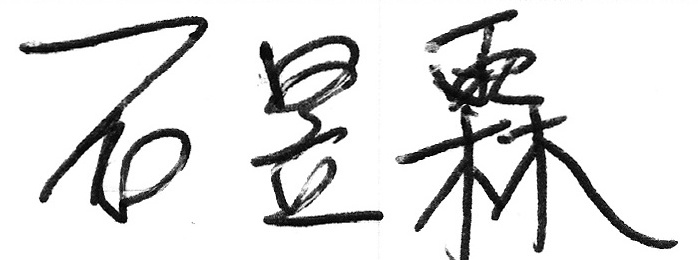 石昱霖